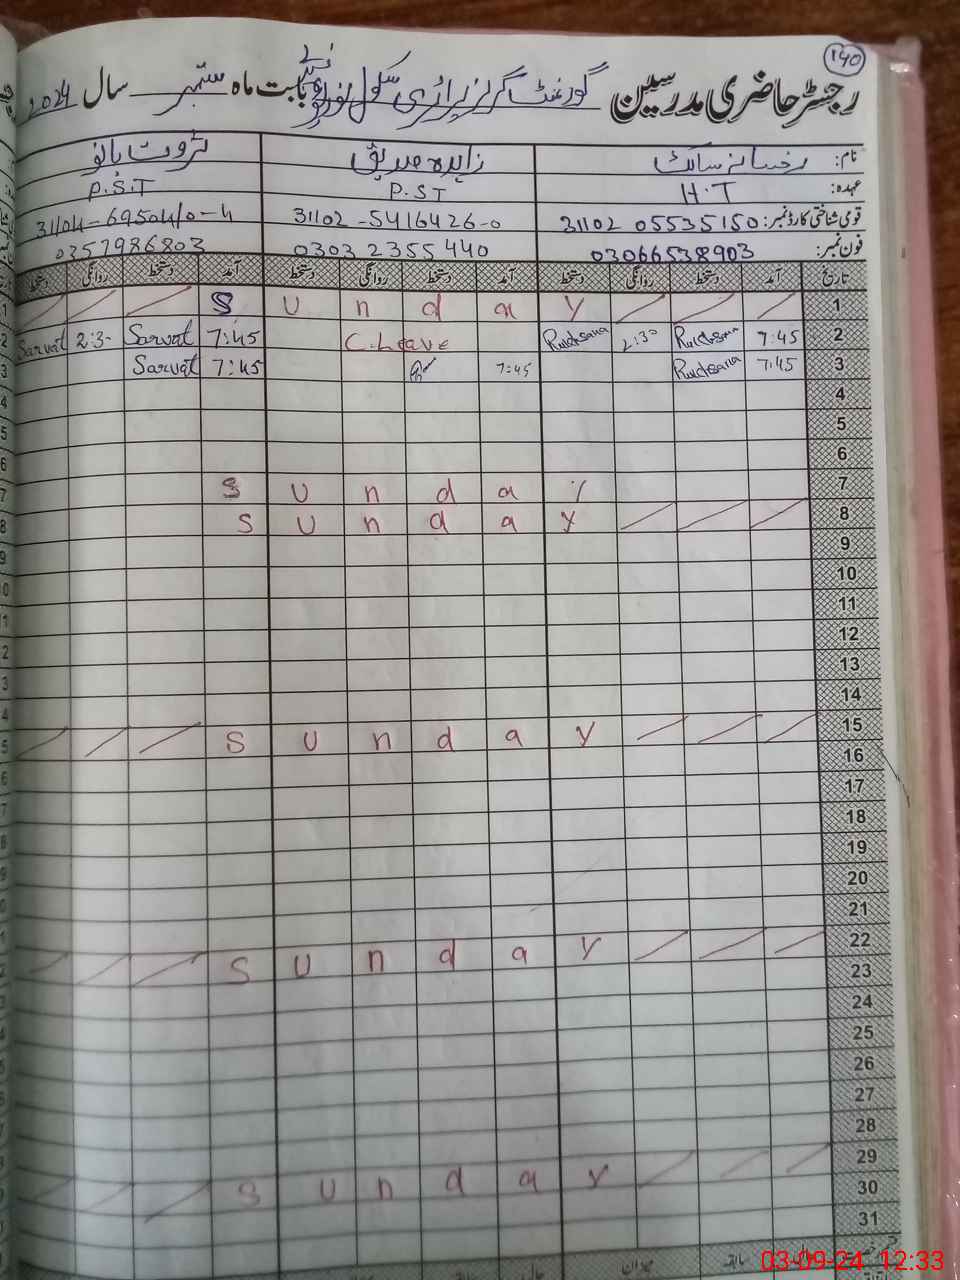 140
رجسٹر حاضری مدرسین گورنمنٹ گرلز پرائمری سکول بابت ماہ ستمبر سال 2024
نام: رخسانہ زاہدہ صدیق ثروت بانو
عہدہ: H.T P.ST P.S.T
قومی شناختی کارڈ نمبر: 31102 0553515 0 31102-5416426-0
فون نمبر: 03066538903 0303 2355440 0357986803
تاریخ آمد دستخط روانگی دستخط آمد دستخط روانگی دستخط آمد دستخط روانگی دستخط
1 S U n d a y
2 7:45 Rukhsana 2:30 Rukhsana C.Leave 7:45 Sarvat 2:3- Sarvat
3 7:45 Rukhsana 7:45 7:45 Sarvat
4
5
6
7 S U n d a y
8 S U n d a y
9
10
11
12
13
14
15 S U n d a y
16
17
18
19
20
21
22 S U n d a y
23
24
25
26
27
28
29 S U n d a y
30
31
سابقہ میزان
03-09-24 12:33